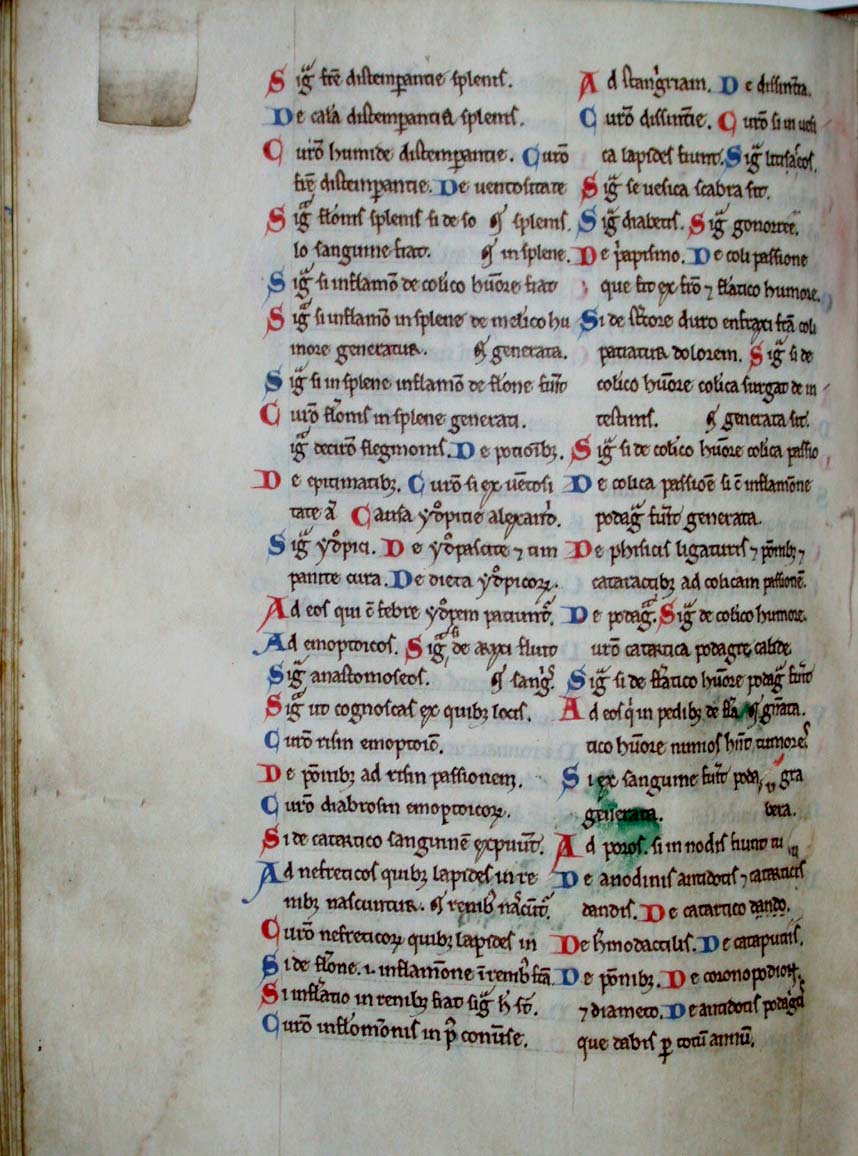 Sig̃ frẽ distemperantie splenis.
De cal'a distemperantia splenis.
Curõ humide distemperantie. Curõ
frẽ distemperantie. De uentositate
Sig̃ flõnis splenis si de so ¶ splenis.
lo sanguine fiat. ¶ in splene.
Sig̃ si inflamõ de colico hũore fiat
Sig̃ si inflamõ in splene de mel'ico hu
more generatur. ¶ generata.
Sig̃ si in splene inflamõ de flõne fuerit
Curõ flõnis in splene generati.
ig̃ de cirõ flegmonis. De potionibꝫ.
De epitimatibꝫ. Curõ si ex uẽtosi
tate
Causa ydropicie alexand'.
Sig̃ ydropici. De ydropascite ⁊ tim
panite cura. De dieta ydropicoꝝ.
Ad eos qui c̃ febre ydropem patiunt'.
Ad emoptoicos. Sig̃ de fluit
Sig̃ anastomoseos. ¶ sang'.
Sig̃ ut cognoscas ex quibꝫ locis.
Curõ risin emoptoic̃.
De põnibꝫ ad risin passionem.
Curõ diabrosin emoptoicoꝝ.
Si de catartico sanguinẽ expuunt'.
Ad nefreticos quibꝫ lapides in re
nibꝫ nascuntur. ¶ renibꝫ nascũt'.
Curõ nefreticoꝝ quibꝫ lapides in
Si de flõne .i. inflamõne ĩ renibꝫ
Si inflatio in renibꝫ fiat sig̃ h'
Curõ inflomonis in
Ad stangu'riam. De dissint'ia.
Curõ dissint'ie. Curõ si in uesi
ca lapides fiunt. Sig̃
Sig̃ se uesica scabra sit.
Sig̃ diabetis. Sig̃ gonorree.
De p'iapismo. De coli passione
que fit ex frõ ⁊ fl'atico humore.
Si de st'core duro enfraxi coli
patiatur dolorem. Sig̃ si de
colico hũore colica surgat de in
testinis. ¶ generata sit.
Sig̃ si de colico hũore colica passio
De colica passiõe si c̃ inflamõne
podag' fuerit generata.
De phisicis ligaturis ⁊ põnibꝫ ⁊
cataractibꝫ ad colicam passionẽ.
De podag'. Sig̃ de colico humore.
urõ catartica podagre calide.
Sig̃ si de fl'atico hũore podag' fuerit
Ad eos q' in pedibꝫ de ¶ g'nata.
tico hũore numos hñt tumores
Si ex sanguine fuerit poda gra
generata.
Ad poros. si in nodis fiunt
De anodinis antidotis ⁊ catarticis
dandis. De catartico dando.
De h'modactilis. De catapuciis.
De põnibꝫ. De coronopodion.
⁊ diameto. De antidotis podag'
que dabis ꝑ totũ annũ.